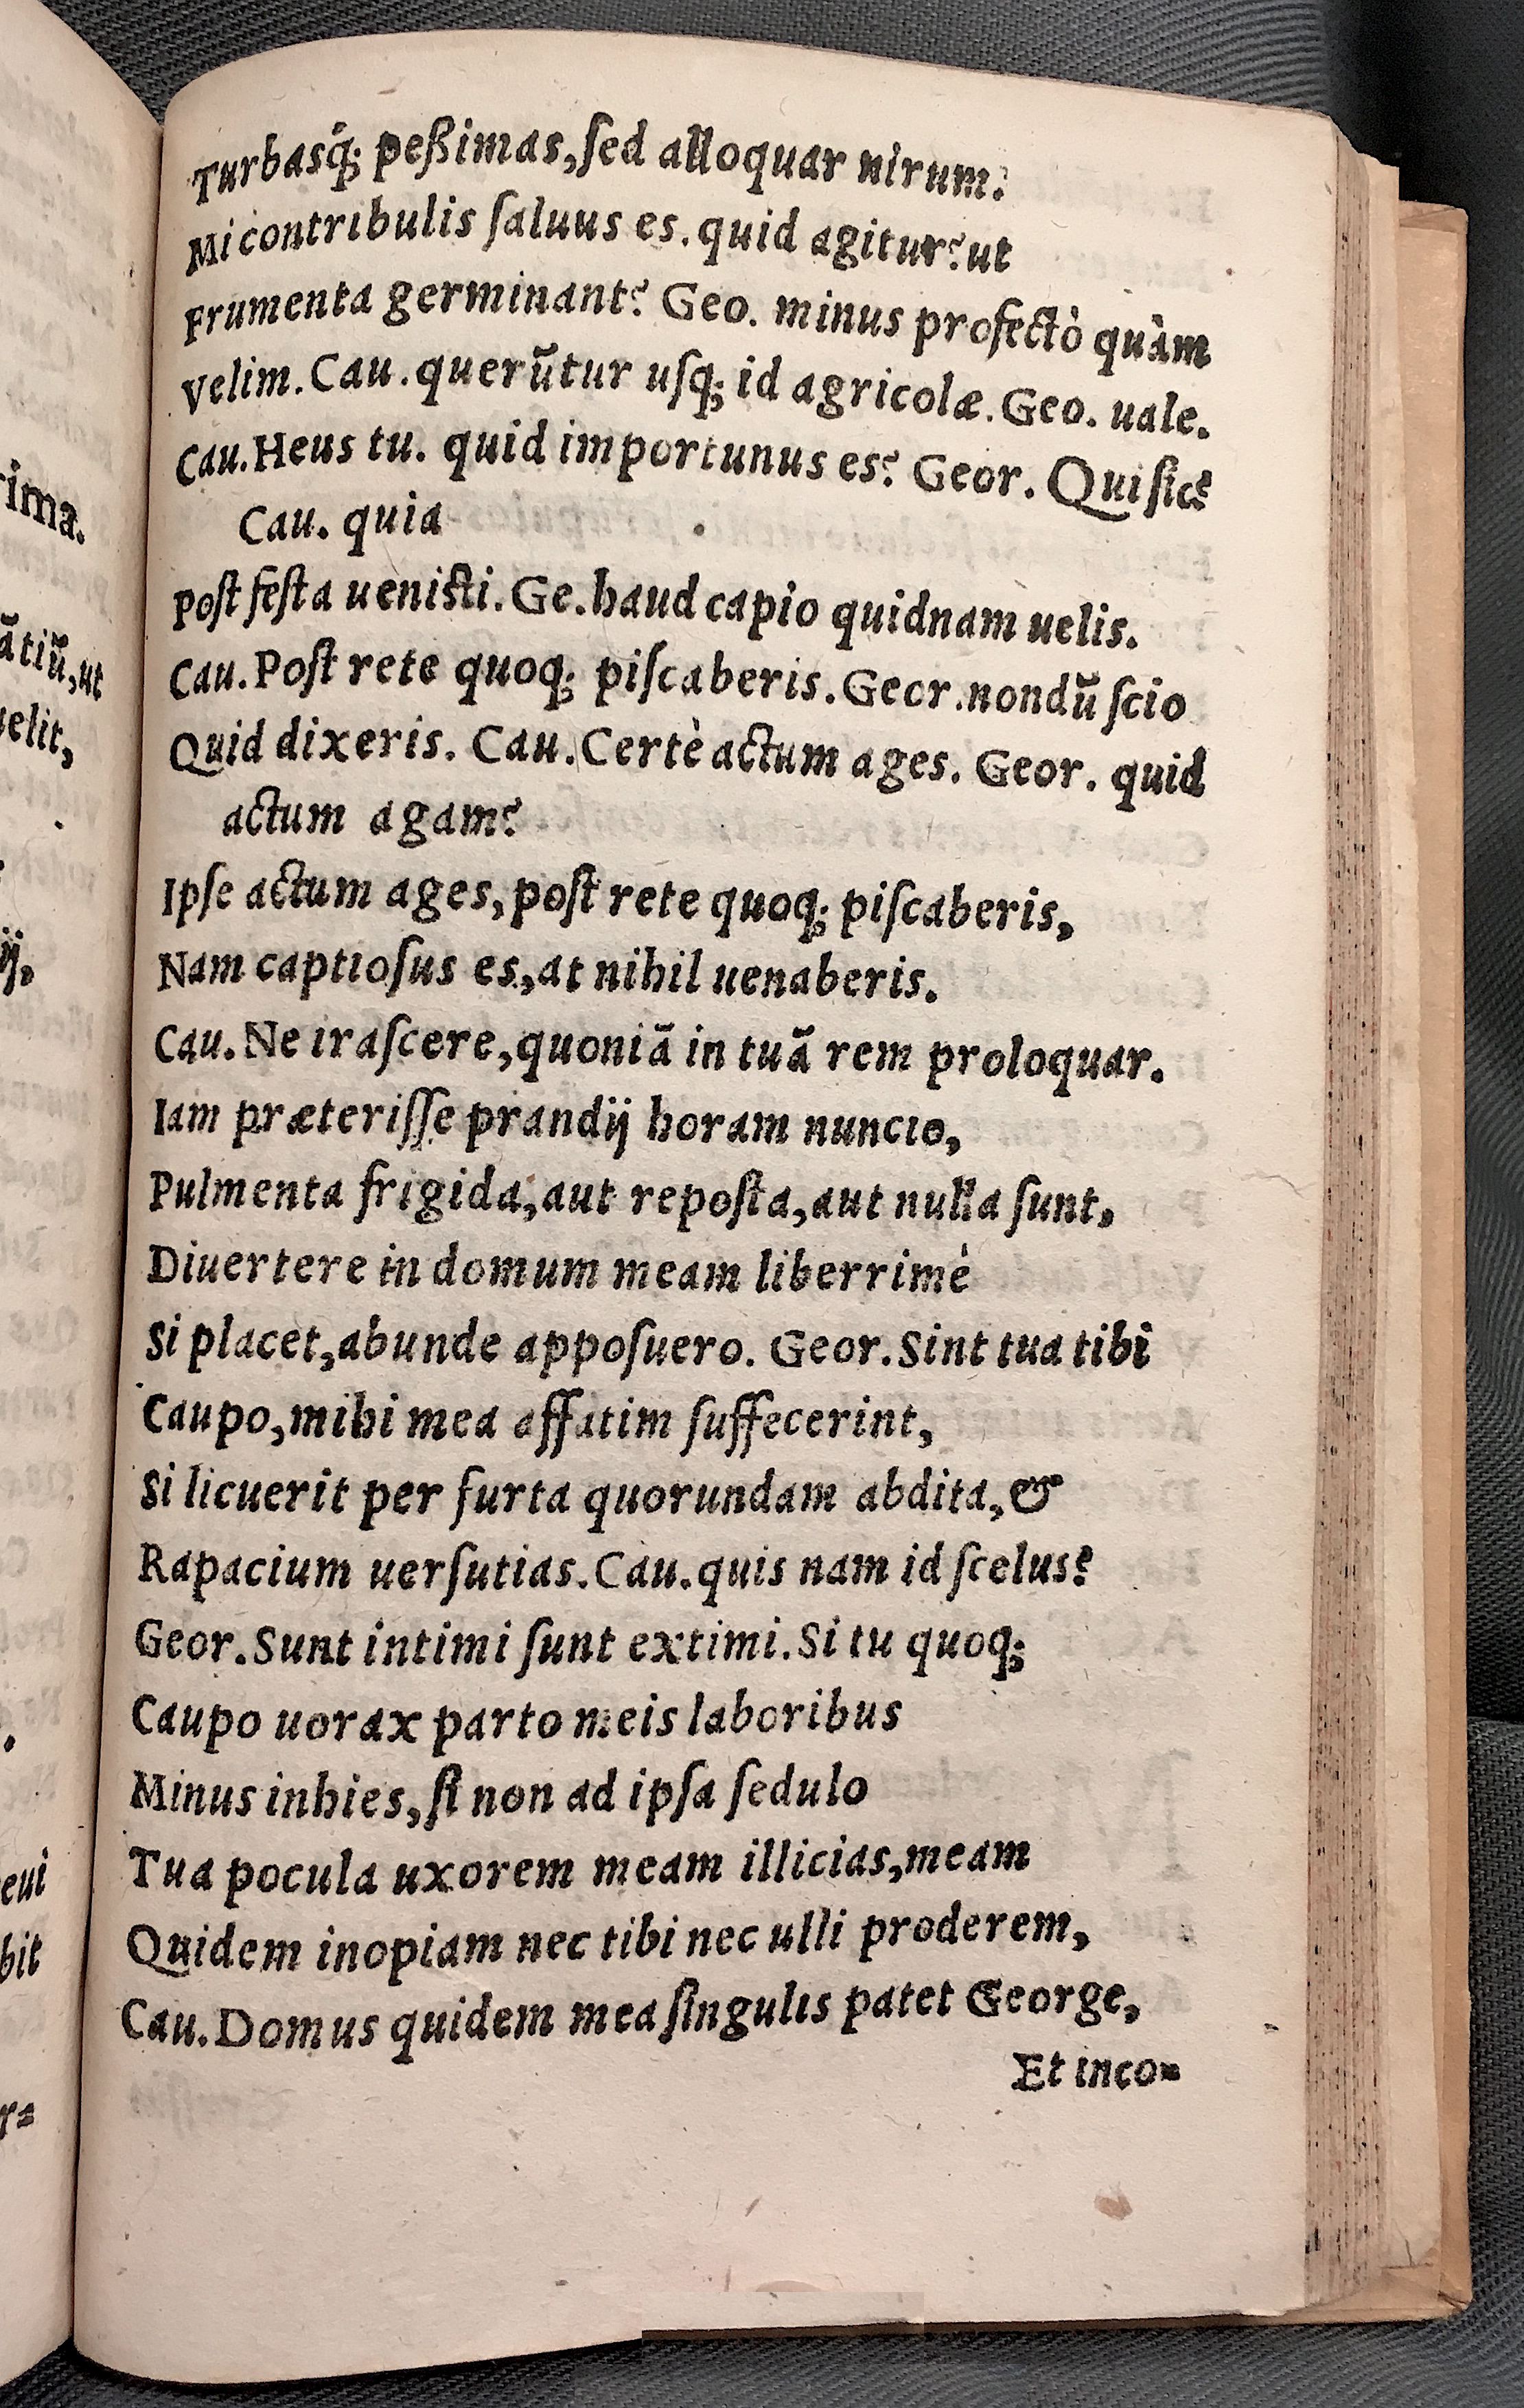 Turbasq́; peßimas, ſed alloquar uirum.
Mi contribulis ſaluus es. quid agitur? ut
Frumenta germinant? Geo. minus profectò quàm
Velim. Cau. querũtur uſq; id agricolæ. Geo. uale.
Cau. Heus tu. quid importunus es? Geor. Qui ſic?
Cau. quia
Poſt feſta ueniſti. Ge. haud capio quidnam uelis.
Cau. Poſt rete quoq; piſcaberis. Geor. nondũ ſcio
Quid dixeris. Cau. Certè actum ages. Geor. quid
actum agam?
Ipſe actum ages, poſt rete quoq; piſcaberis,
Nam captioſus es, at nihil uenaberis.
Cau. Ne iraſcere, quoniã in tuã rem proloquar.
Iam præteriſſe prandij horam nuncio,
Pulmenta frigida, aut repoſta, aut nulla ſunt,
Diuertere in domum meam liberrimè
Si placet, abunde appoſuero. Geor. Sint tua tibi
Caupo, mihi mea affatim ſuffecerint,
Si licuerit per furta quorundam abdita, &
Rapacium uerſutias. Cau. quis nam id ſcelus?
Geor. Sunt intimi ſunt extimi. Si tu quoq;
Caupo uorax parto meis laboribus
Minus inhies, ſi non ad ipſa ſedulo
Tua pocula uxorem meam illicias, meam
Quidem inopiam nec tibi nec ulli proderem,
Cau. Domus quidem mea ſingulis patet George,
Et inco=